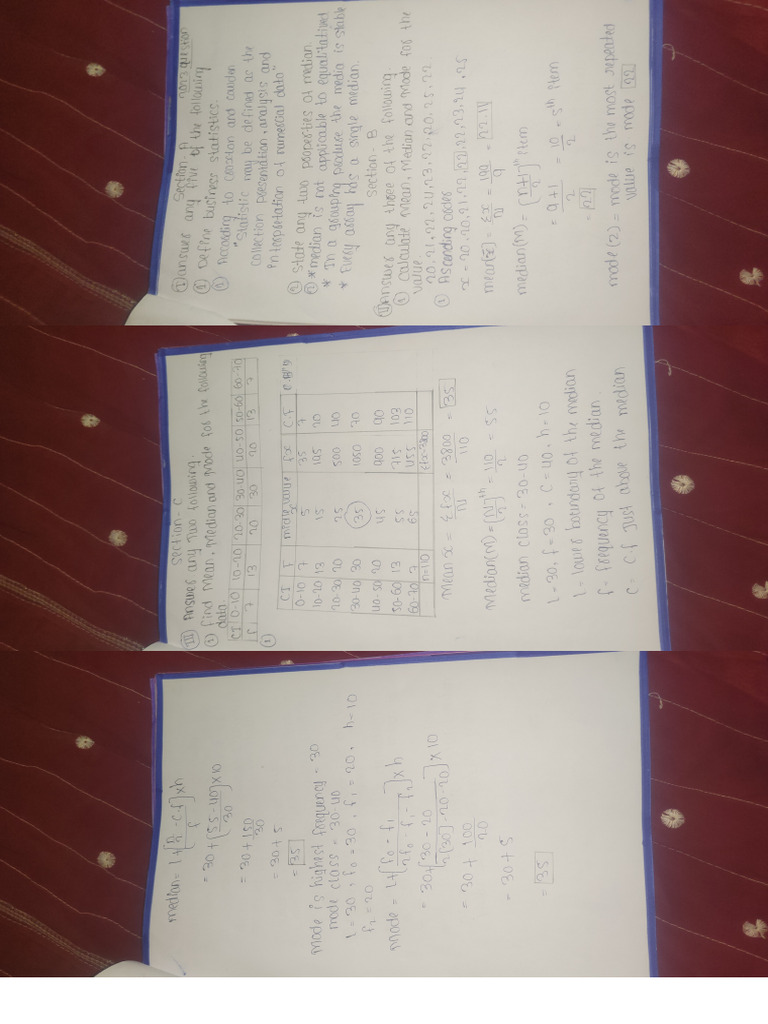 Section-A
non3 question
I answer any five of the following
① Define business statistics.
① According to coaxton and cauden
"Statistic may be defined as the
collection presentation, analysis and
interpretation of numerical data"
② State any two properties of median.
② * median is not applicable to equalitatives
* In a grouping produre the media is stable
* Every array has a single median.
Section-B
II Answer any three of the following.
① Calculate mean, Median and Mode for the
value.
20, 21, 22, 24, 23, 22, 20, 25, 22.
① Ascending order
x = 20, 20, 21, 22, 22, 22, 23, 24, 25
mean(x̄) = Σx/N = 199/9 = 22.11
median(M) = [n+1/2]th item
= 9+1/2 = 10/2 = 5th item
= 22
mode(z) = mode is the most repeated
value is mode 22
Section-C
III Answer any Two following.
① find Mean, Median and Mode for the following
data.
CI 0-10 10-20 20-30 30-40 40-50 50-60 60-70
f 7 13 20 30 20 13 7
①
CI F middle value x fx C.F
0-10 7 5 35 7
10-20 13 15 195 20
20-30 20 25 500 40
30-40 30 35 1050 70
40-50 20 45 900 90
50-60 13 55 715 103
60-70 7 65 455 110
n=110 Σfx=3800
Mean x = Σfx/N = 3800/110 = 35
Median(M) = [N/2]th = 110/2 = 55
median class = 30-40
l = 30, f = 30, C = 40, h = 10
l = lower boundary of the median
f = frequency of the median.
C = C.f Just above the median
median = l + [n/2 - c.f / f] x h
= 30 + [55 - 40 / 30] x 10
= 30 + 150/30
= 30 + 5
= 35
Mode is highest frequency = 30
mode class = 30-40
l = 30, f0 = 30, f1 = 20, h = 10
f2 = 20
Mode = L + [f0 - f1 / 2f0 - f1 - f2] x h
= 30 + [30 - 20 / 2[30] - 20 - 20] x 10
= 30 + 100/20
= 30 + 5
= 35